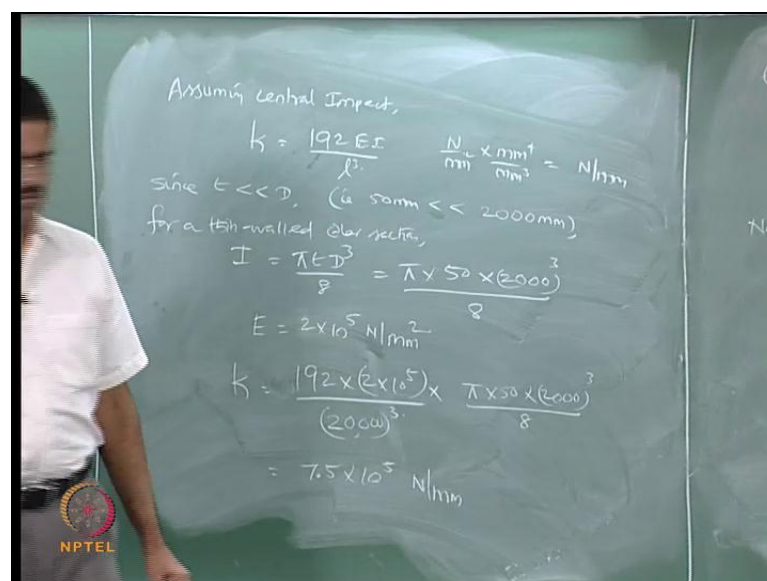 Assuming central Impact,
k = 192 EI / l³ N/mm² × mm⁴/mm³ = N/mm
since t << D, (ie 50mm << 2000mm)
for a thin-walled section,
I = πtD³/8 = π × 50 × (2000)³ / 8
E = 2×10⁵ N/mm²
k = 192 × (2×10⁵) / (20,000)³ × π × 50 × (2000)³ / 8
= 7.5 × 10⁵ N/mm
NPTEL